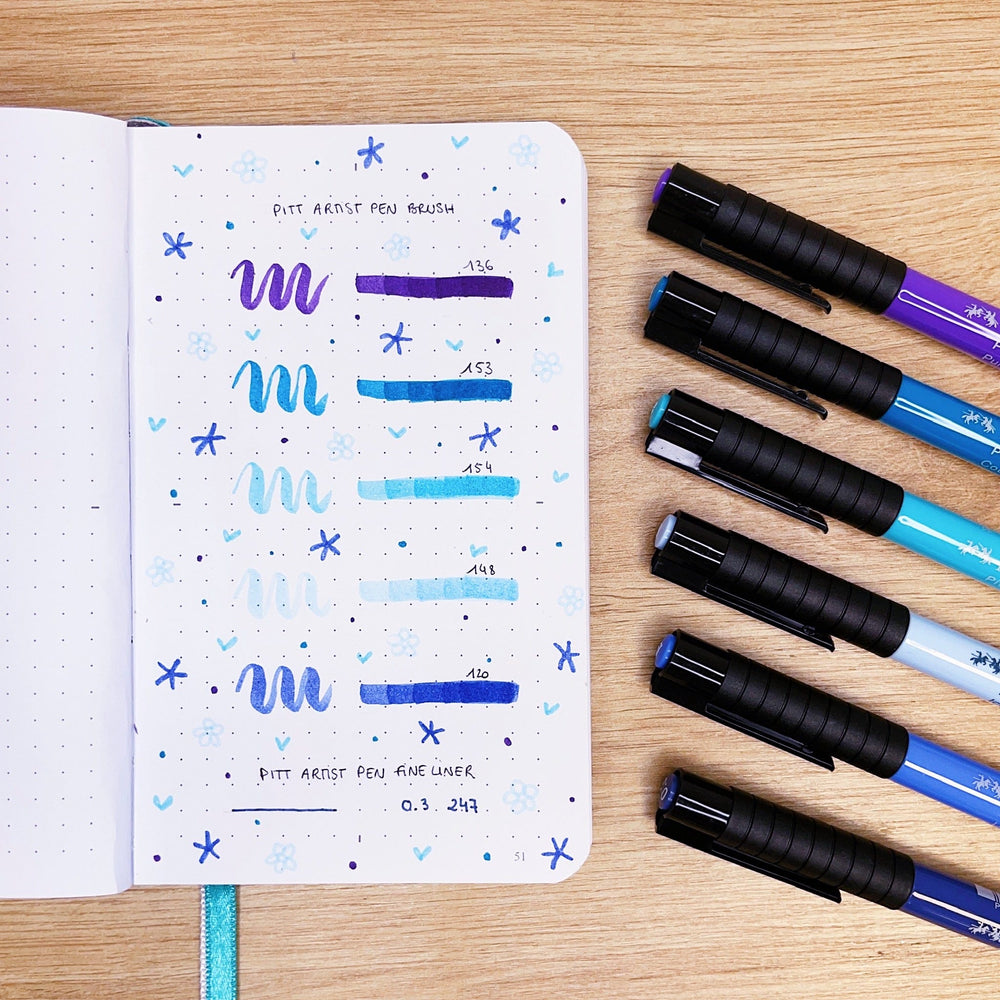 PITT ARTIST PEN BRUSH
136
153
154
148
120
PITT ARTIST PEN FINELINER
0.3. 247
51